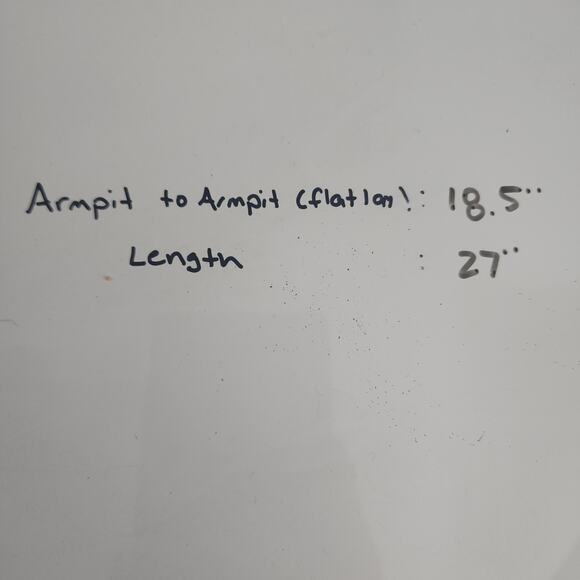 Armpit to Armpit (flat lay): 18.5"
Length : 27"